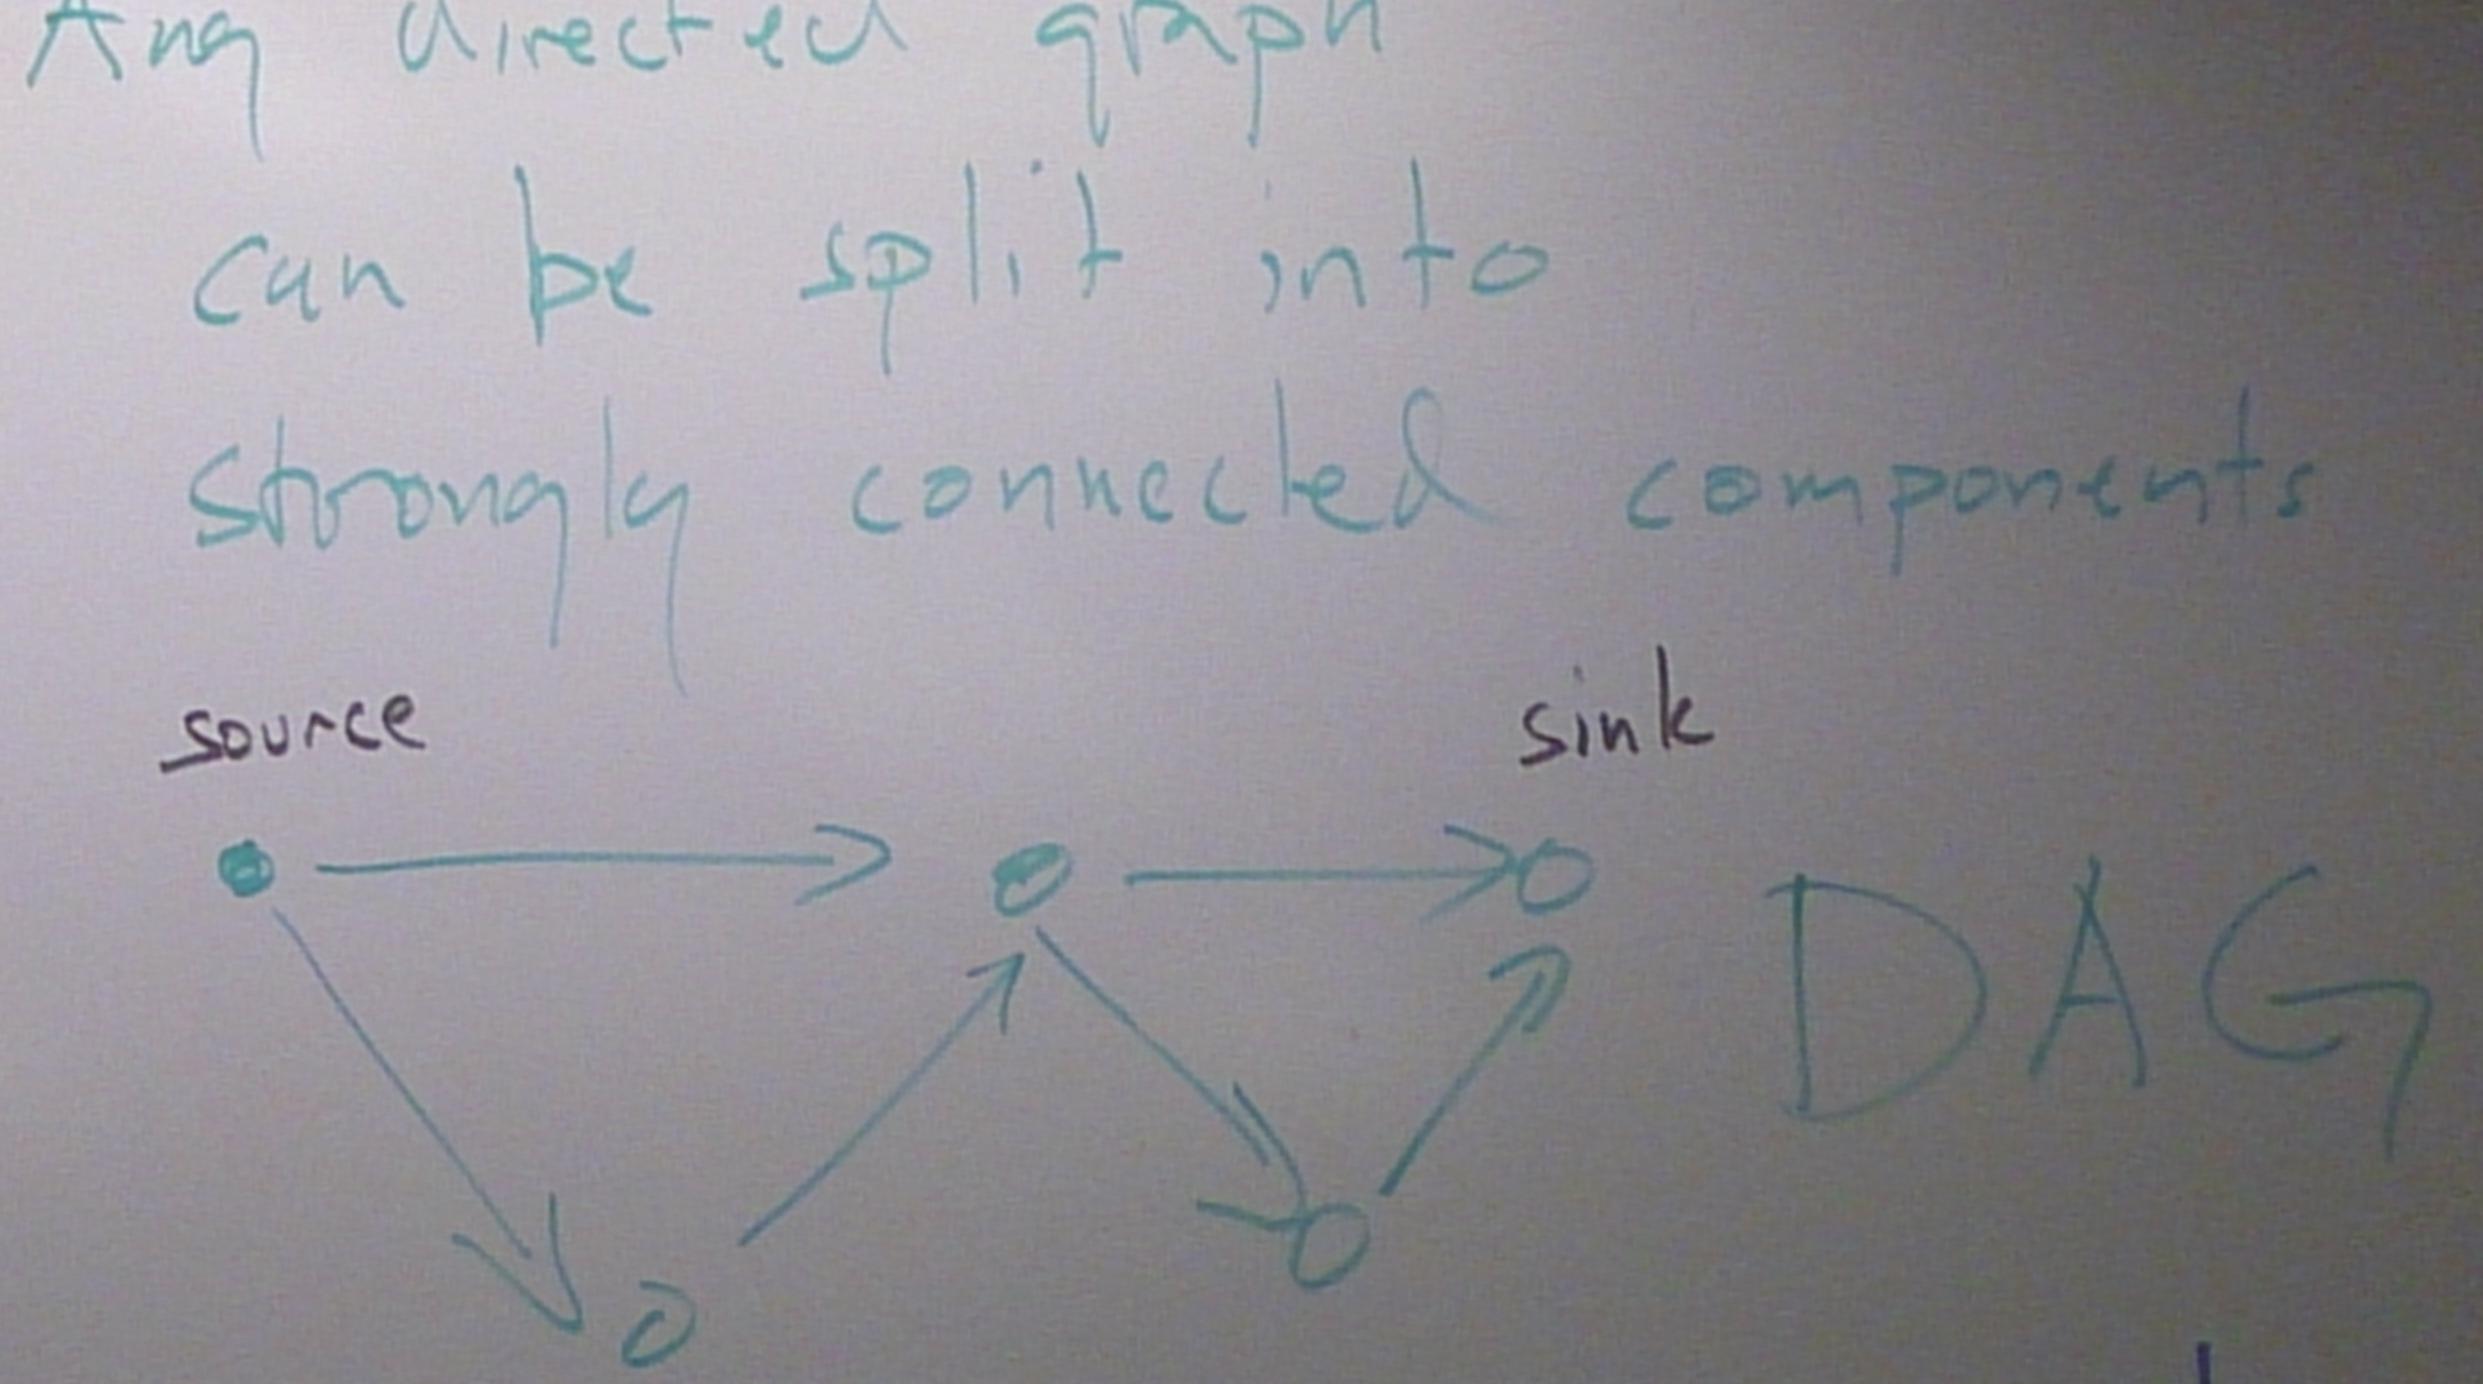 Any directed graph
can be split into
strongly connected components
source sink
DAG